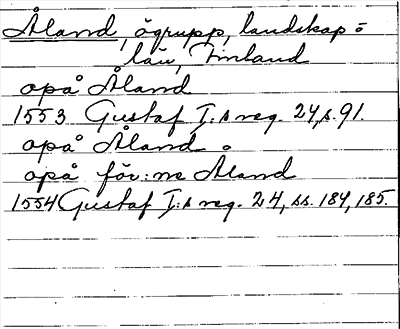 Åland, ögrupp, landskap =
län, Finland
opå Åland
1553 Gustaf I:s reg. 24, s. 91.
opå Åland.
opå för:ne Åland
1554 Gustaf I:s reg. 24, ss. 184, 185.